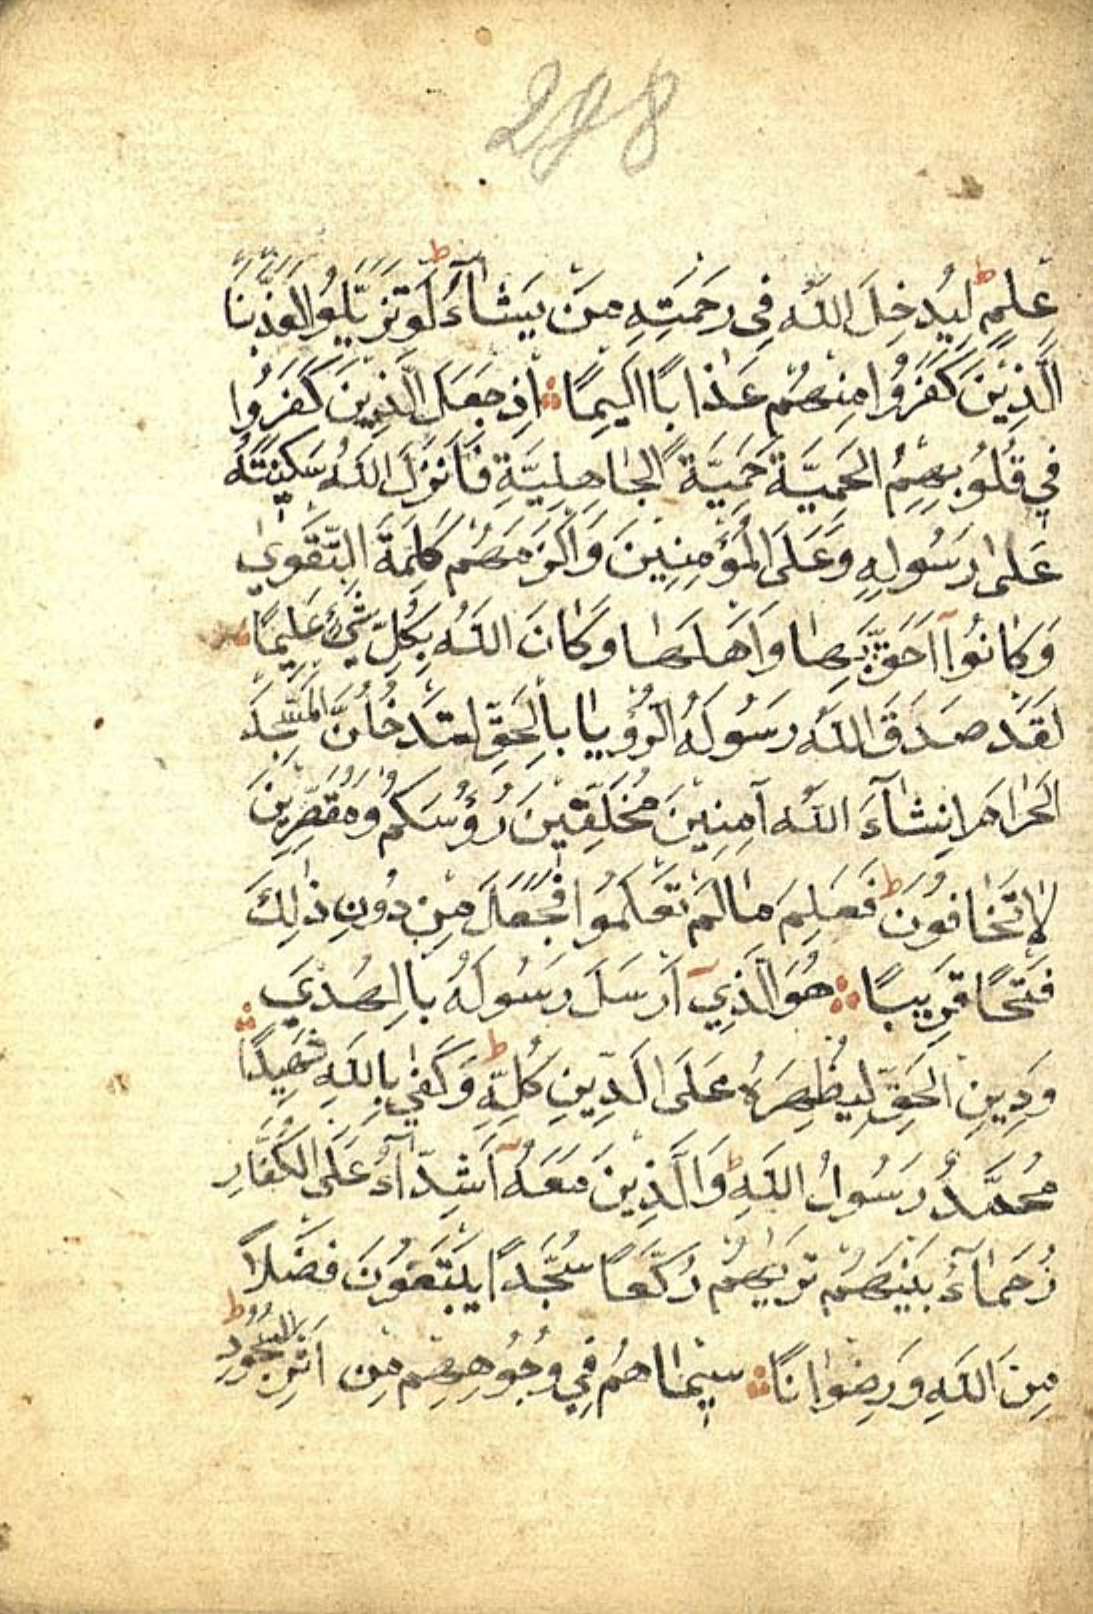 278
عِلمٍ ط لِيُدخِلَ اللّٰهُ فِى رَحمَتِهِ مَن يَشَآءُ ط لَو تَزَيَّلُوا لَعَذَّبنَا
الَّذِينَ كَفَرُوا مِنهُم عَذَابًا اَلِيمًا ۞ اِذ جَعَلَ الَّذِينَ كَفَرُوا
فِي قُلُوبِهِمُ الحَمِيَّةَ حَمِيَّةَ الجَاهِلِيَّةِ فَاَنزَلَ اللّٰهُ سَكِينَتَهُ
عَلىٰ رَسُولِهِ وَعَلَى المُؤمِنِينَ وَاَلزَمَهُم كَلِمَةَ التَّقوىٰ
وَكَانُوآ اَحَقَّ بِهَا وَاَهلَهَا وَكَانَ اللّٰهُ بِكُلِّ شَيْءٍ عَلِيمًا ۞
لَقَد صَدَقَ اللّٰهُ رَسُولَهُ الرُّؤيَا بِالحَقِّ لَتَدخُلُنَّ المَسجِدَ
الحَرَامَ اِنشَآءَ اللّٰهُ آمِنِينَ مُحَلِّقِينَ رُؤُسَكُم وَمُقَصِّرِينَ
لَا تَخَافُونَ ط فَعَلِمَ مَا لَم تَعلَمُوا فَجَعَلَ مِن دُونِ ذٰلِكَ
فَتحًا قَرِيبًا ۞ هُوَ الَّذِيٓ اَرسَلَ رَسُولَهُ بِالهُدىٰ
وَدِينِ الحَقِّ لِيُظهِرَهُ عَلَى الدِّينِ كُلِّهِ ط وَكَفىٰ بِاللّٰهِ شَهِيدًا ۞
مُحَمَّدٌ رَسُولُ اللّٰهِ ط وَالَّذِينَ مَعَهُٓ اَشِدَّآءُ عَلَى الكُفَّارِ
رُحَمَآءُ بَينَهُم تَرَىٰهُم رُكَّعًا سُجَّدًا يَبتَغُونَ فَضلًا
مِنَ اللّٰهِ وَرِضوَانًا ۞ سِيمَاهُم فِي وُجُوهِهِم مِن اَثَرِ السُّجُودِ ط